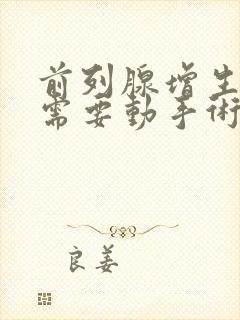 前列腺增生
需要动手術
良姜